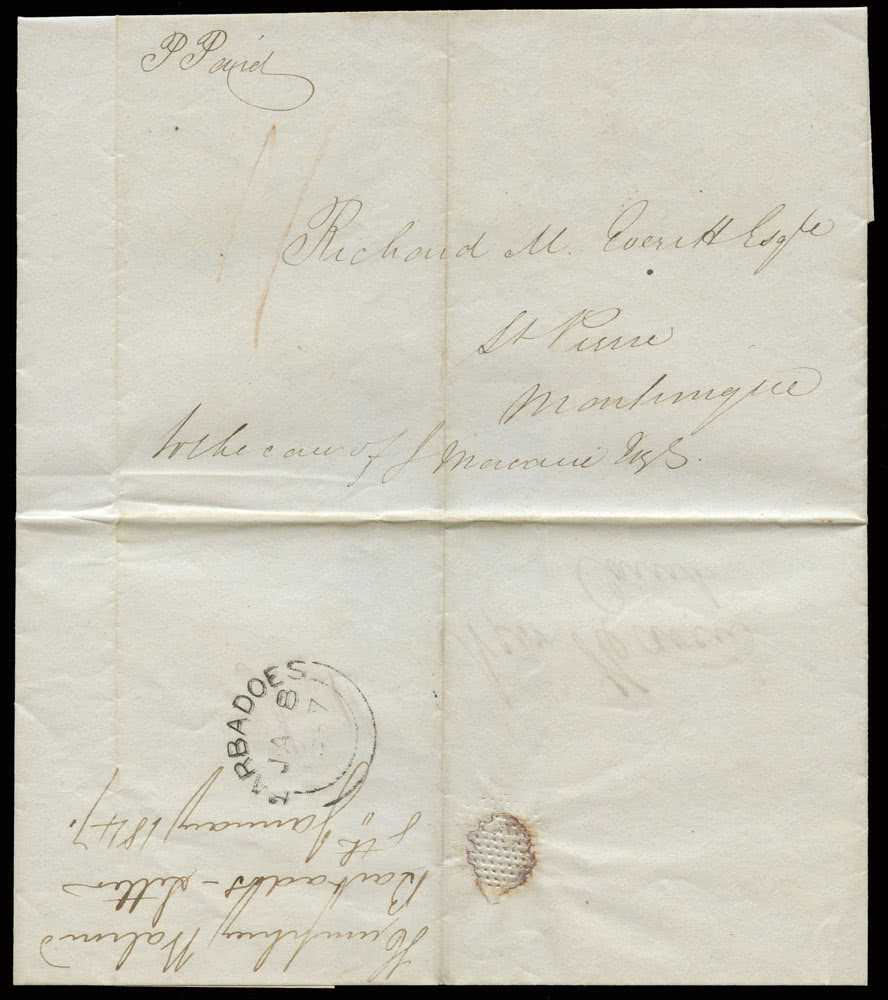 P Paid
1/
Richard M. Everitt Esqre
St Pierre
Martinique
to the care of J
New Haven
BARBADOES
JA 8
1847
Humphrey
Barbados - letter
8th January 1847.